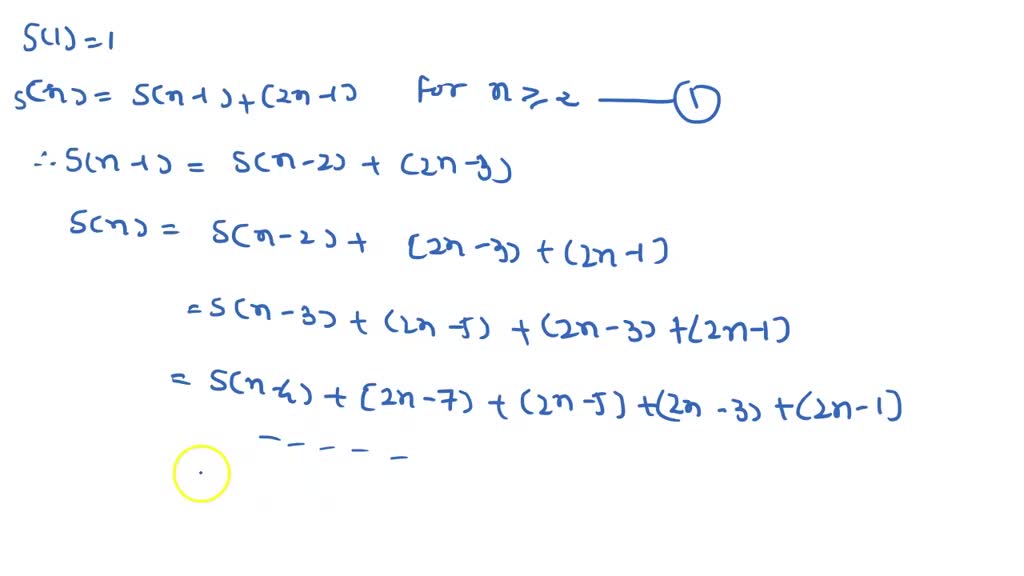 S(1) = 1
S(n) = S(n-1) + (2n-1) for n ≥ 2 —— ①
∴ S(n-1) = S(n-2) + (2n-3)
S(n) = S(n-2) + (2n-3) + (2n-1)
= S(n-3) + (2n-5) + (2n-3) + (2n-1)
= S(n-4) + (2n-7) + (2n-5) + (2n-3) + (2n-1)
– – – – –